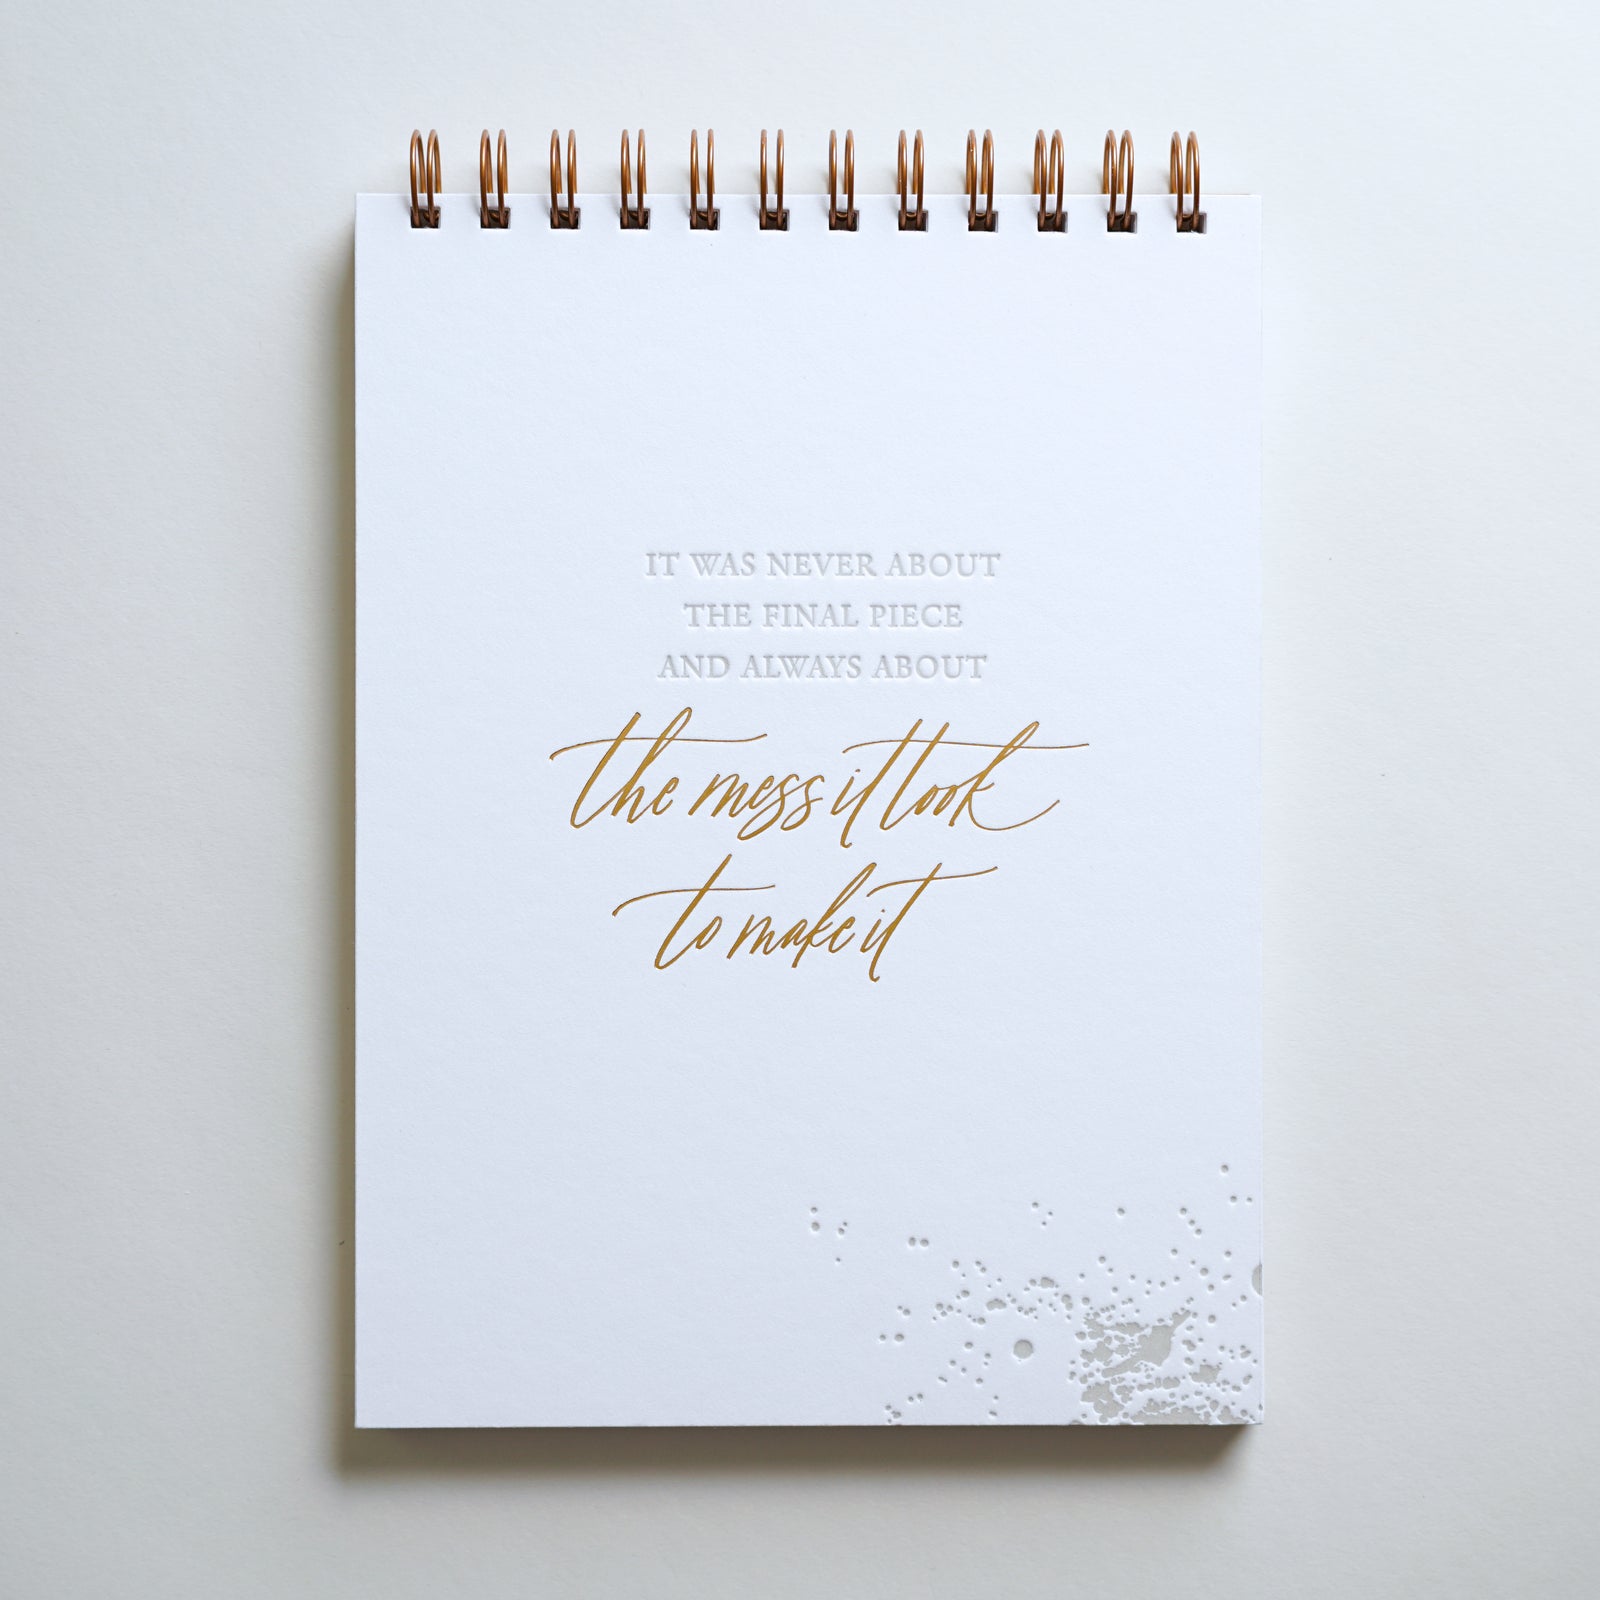 IT WAS NEVER ABOUT
THE FINAL PIECE
AND ALWAYS ABOUT
the mess it took
to make it